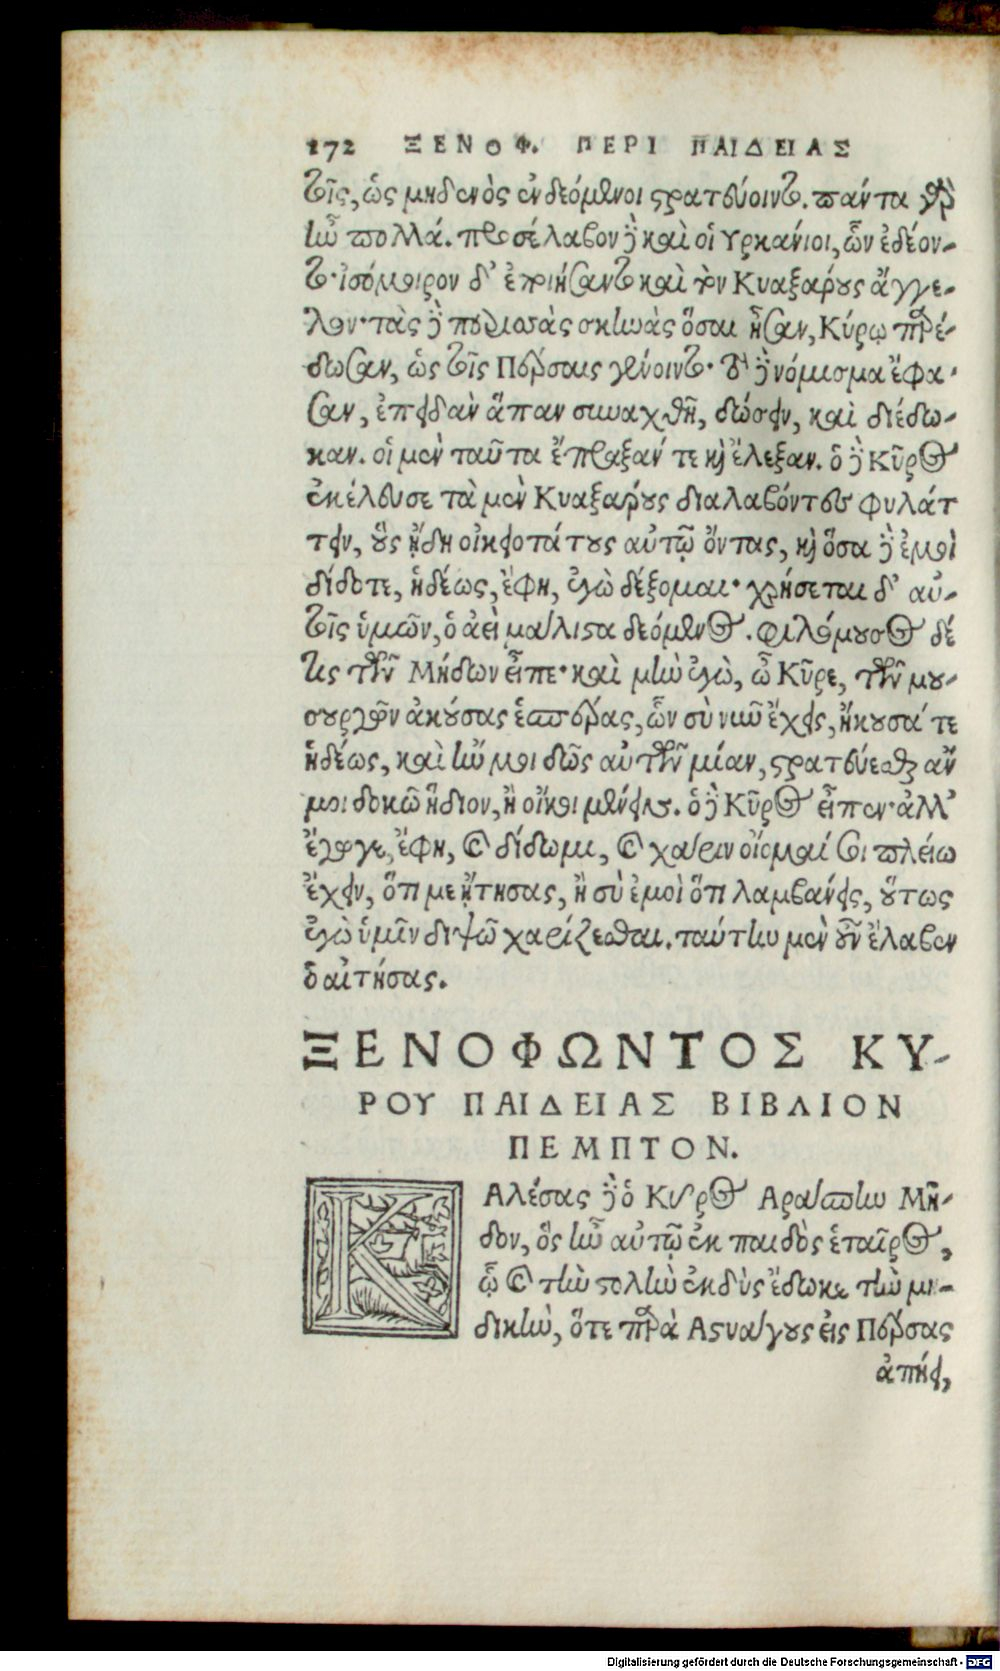 172 ΞΕΝΟΦ. ΠΕΡΙ ΠΑΙΔΕΙΑΣ
τοῖς, ὡς μηδενὸς ἐνδεόμενοι στρατεύοιντο. πάντα γὰρ
ἦν πολλά. προσέλαβον δὲ καὶ οἱ Υρκάνιοι, ὧν ἐδέον-
το· ἰσόμοιρον δ' ἐποιήσαντο καὶ τὸν Κυαξάρους ἄγγε-
λον· τὰς δὲ περιοσὰς σκηνὰς ὅσαι ἦσαν, Κύρῳ παρέ-
δωσαν, ὡς τοῖς Πέρσαις γένοιντο. τὸ δὲ νόμισμα ἔφα-
σαν, ἐπειδὰν ἅπαν συναχθῇ, δώσειν, καὶ διέδω-
καν. οἱ μὲν ταῦτα ἔπραξάν τε καὶ ἔλεξαν. ὁ δὲ Κῦρος
ἐκέλευσε τὰ μὲν Κυαξάρους διαλαβόντας φυλάτ
τειν, οὓς ᾔδη οἰκειοτάτους αὐτῷ ὄντας, καὶ ὅσα δὲ ἐμοὶ
δίδοτε, ἡδέως, ἔφη, ἐγὼ δέξομαι· χρήσεται δ' αὐ-
τοῖς ὑμῶν, ὁ ἀεὶ μάλιστα δεόμενος. φιλόμουσος δέ
τις τῶν Μήδων εἶπε· καὶ μὴν ἐγὼ, ὦ Κῦρε, τῶν μου-
σουργῶν ἀκούσας ἑσπέρας, ὧν σὺ νῦν ἔχεις, ἤκουσά τε
ἡδέως, καὶ ἤν μοι δῷς αὐτῶν μίαν, στρατεύεσθαι ἄν
μοι δοκῶ ἥδιον, ἢ οἴκοι μένειν. ὁ δὲ Κῦρος εἶπεν· ἀλλ'
ἔγωγε, ἔφη, καὶ δίδωμι, καὶ χάριν οἴομαί σοι πλείω
ἔχειν, ὅτι με ᾔτησας, ἢ σὺ ἐμοὶ ὅτι λαμβάνεις, οὕτως
ἐγὼ ὑμῖν διψῶ χαρίζεσθαι. ταύτην μὲν οὖν ἔλαβεν
ὁ αἰτήσας.
ΞΕΝΟΦΩΝΤΟΣ ΚΥ-
ΡΟΥ ΠΑΙΔΕΙΑΣ ΒΙΒΛΙΟΝ
ΠΕΜΠΤΟΝ.
ΚΑλέσας δὲ ὁ Κῦρος Αράσπην Μῆ-
δον, ὃς ἦν αὐτῷ ἐκ παιδὸς ἑταῖρος,
ᾧ καὶ τὴν στολὴν ἐκδὺς ἔδωκε τὴν μη-
δικὴν, ὅτε παρὰ Αστυάγους εἰς Πέρσας
ἀπῄει,
Digitalisierung gefördert durch die Deutsche Forschungsgemeinschaft - DFG